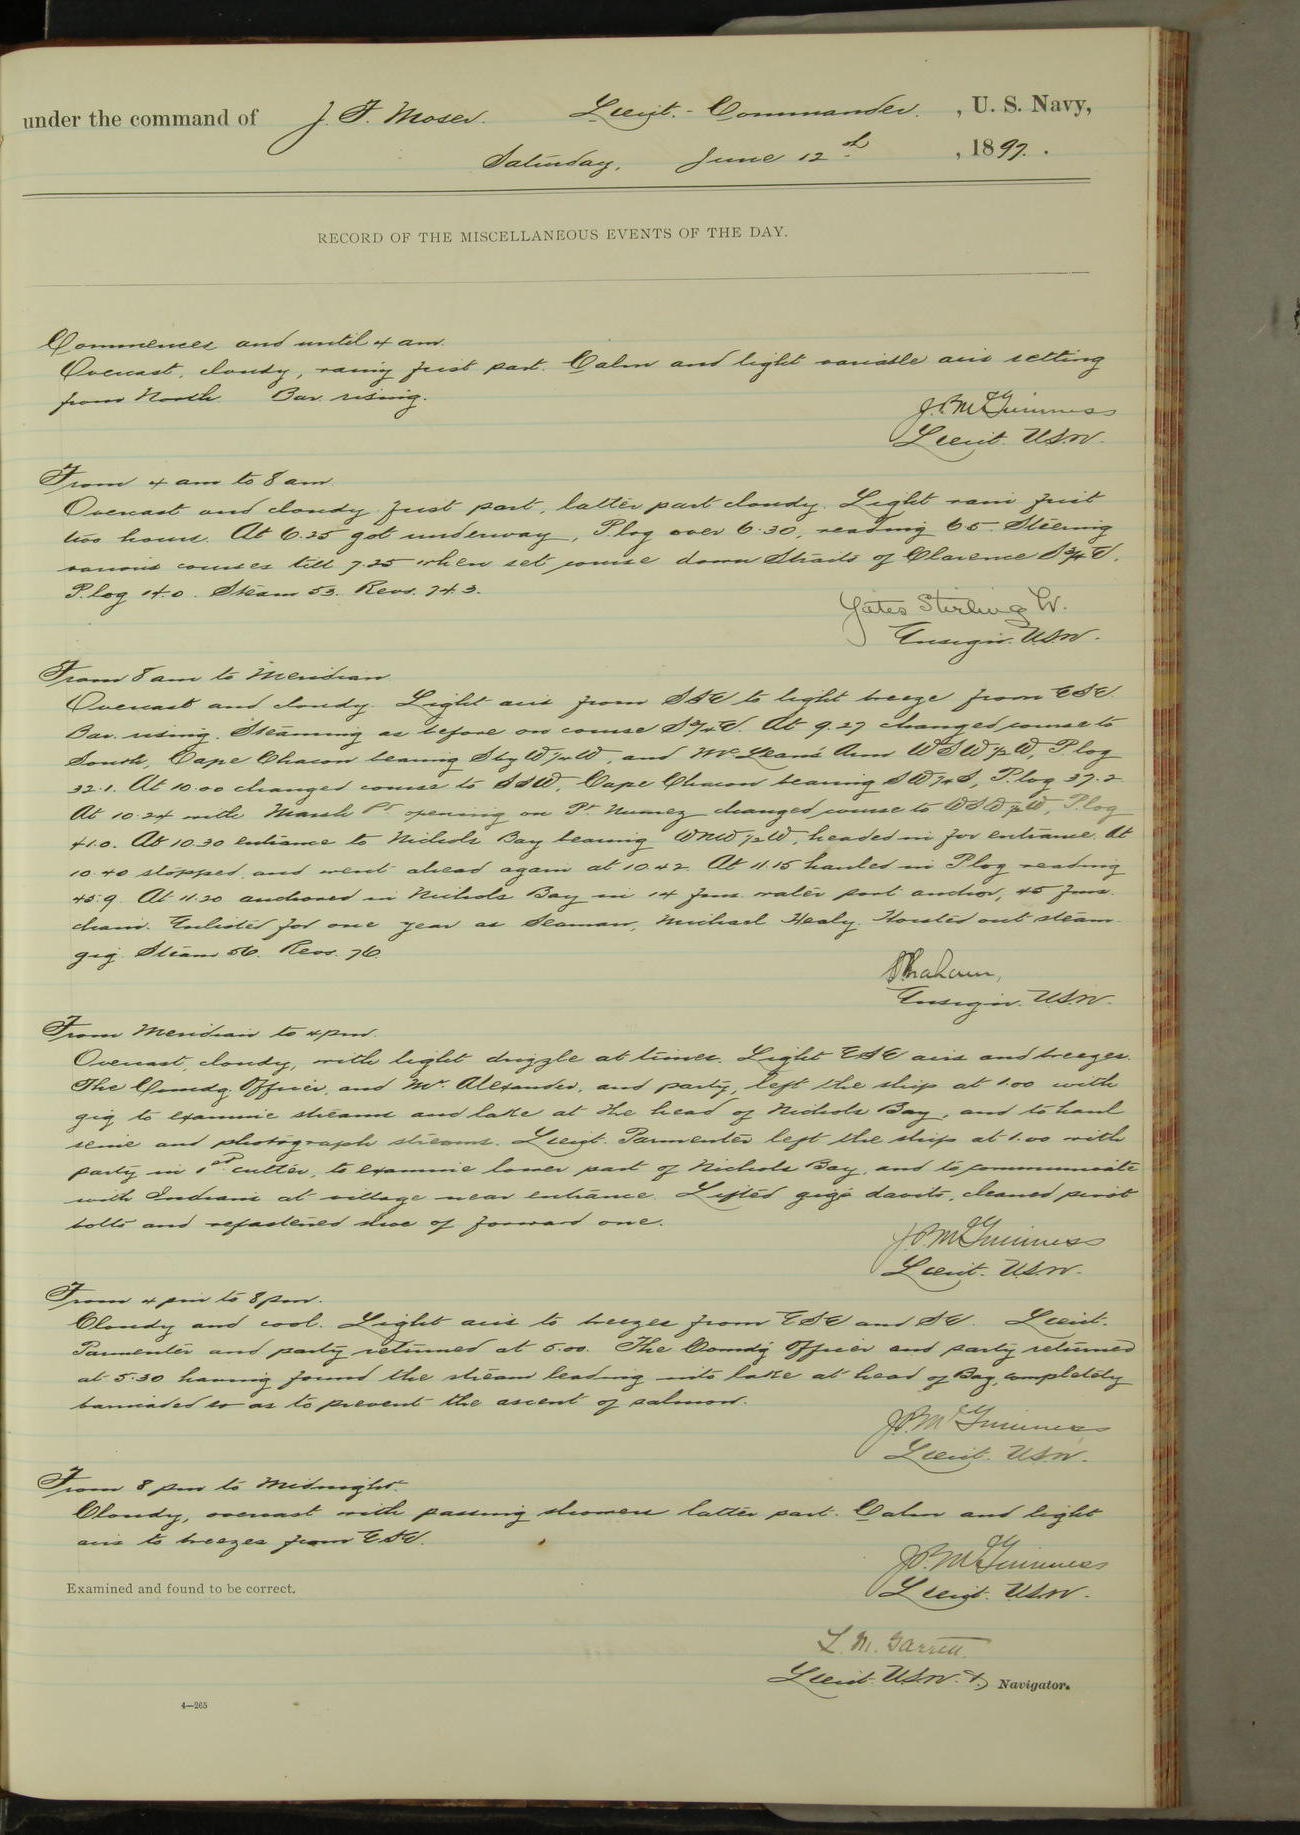 under the command of J. F. Moser. Lieut.-Commander. , U. S. Navy,
Saturday, June 12th , 1897.
RECORD OF THE MISCELLANEOUS EVENTS OF THE DAY.
Commences and until 4 am.
Overcast, cloudy, rainy first part. Calm and light variable airs setting
from North. Bar. rising.
J.P. McGuinness
Lieut. U.S.N.
From 4 am to 8 am.
Overcast and cloudy first part, latter part cloudy. Light rain first
two hours. At 6.25 got underway, P.log over 6.30, reading 65. Steering
various courses till 7.25 when set course down Straits of Clarence S¾E.
P.log 14.0. Steam 53. Revs. 74.3.
Yates Stirling Jr.
Ensign. U.S.N.
From 8 am to Meridian
Overcast and cloudy. Light airs from SSE to light breeze from ESE.
Bar. rising. Steaming as before on course S¾E. At 9.27 changed course to
South, Cape Chacon bearing SbyW¼W, and McLean's Arm WSW½W, P.log
32.1. At 10.00 changed course to SSW, Cape Chacon bearing SW¼S, P.log 37.2
At 10.24 with Marsh Pt opening on Pt. Nunez changed course to WSW½W, P.log
41.0. At 10.30 entrance to Nichols Bay bearing WNW½W, headed in for entrance. At
10.40 stopped and went ahead again at 10.42. At 11.15 hauled in P.log reading
45.9. At 11.20 anchored in Nichols Bay in 14 fms. water port anchor, 45 fms.
chain. Enlisted for one year as Seaman, Michael Healy. Hoisted out steam
gig. Steam 56. Revs. 76.
Graham,
Ensign. U.S.N.
From Meridian to 4 pm.
Overcast, cloudy, with light drizzle at times. Light ESE airs and breezes.
The Comdg. Officer, and Mr. Alexander, and party, left the ship at 1.00 with
gig to examine streams and lake at the head of Nichols Bay, and to haul
seine and photograph streams. Lieut. Parmenter left the ship at 1.00 with
party in 1st cutter, to examine lower part of Nichols Bay, and to communicate
with Indians at village near entrance. Lifted gig's davits, cleaned pivot
bolts and refastened shoe of forward one.
J.P. McGuinness
Lieut. U.S.N.
From 4 pm to 8 pm.
Cloudy and cool. Light airs to breezes from ESE and SE. Lieut.
Parmenter and party returned at 5.00. The Comdg Officer and party returned
at 5.30 having found the stream leading into lake at head of Bay, completely
barricaded so as to prevent the ascent of salmon.
J.P. McGuinness
Lieut. U.S.N.
From 8 pm to Midnight.
Cloudy, overcast with passing showers latter part. Calm and light
airs to breezes from ESE.
J.P. McGuinness
Lieut. U.S.N.
Examined and found to be correct.
L. M. Garrett.
Lieut. U.S.N. & Navigator.
4—265